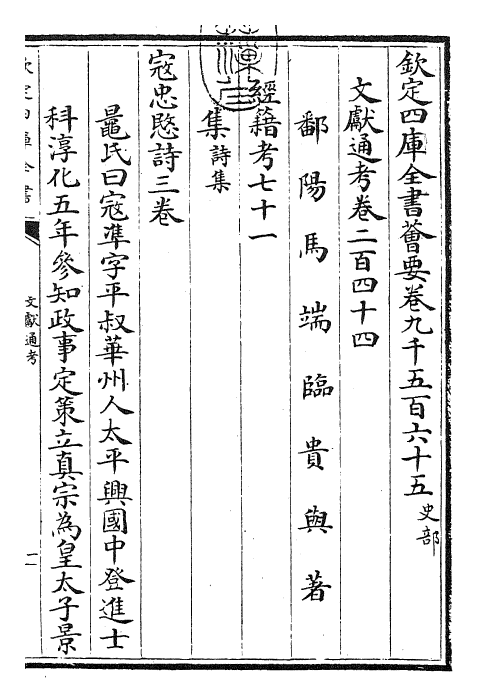 欽定四庫全書薈要卷九千五百六十五 史部
文獻通考卷二百四十四
鄱陽馬端臨貴與著
經籍考七十一
集 詩集
寇忠愍詩三卷
鼂氏曰寇準字平叔華州人太平興國中登進士
科淳化五年參知政事定策立真宗為皇太子景
文獻通考
一